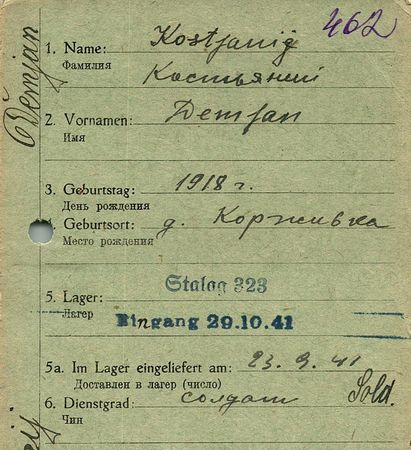 462
Demjan
1. Name: Kostjanij
Фамилия Костьяний
2. Vornamen: Demjan
Имя
3. Geburtstag: 1918 г.
День рождения
Geburtsort: д. Корживка
Место рождения
Stalag 323
5. Lager:
Лагер
Eingang 29.10.41
5a. Im Lager eingeliefert am: 23.9.41
Доставлен в лагер (число)
6. Dienstgrad: солдат Sold.
Чин